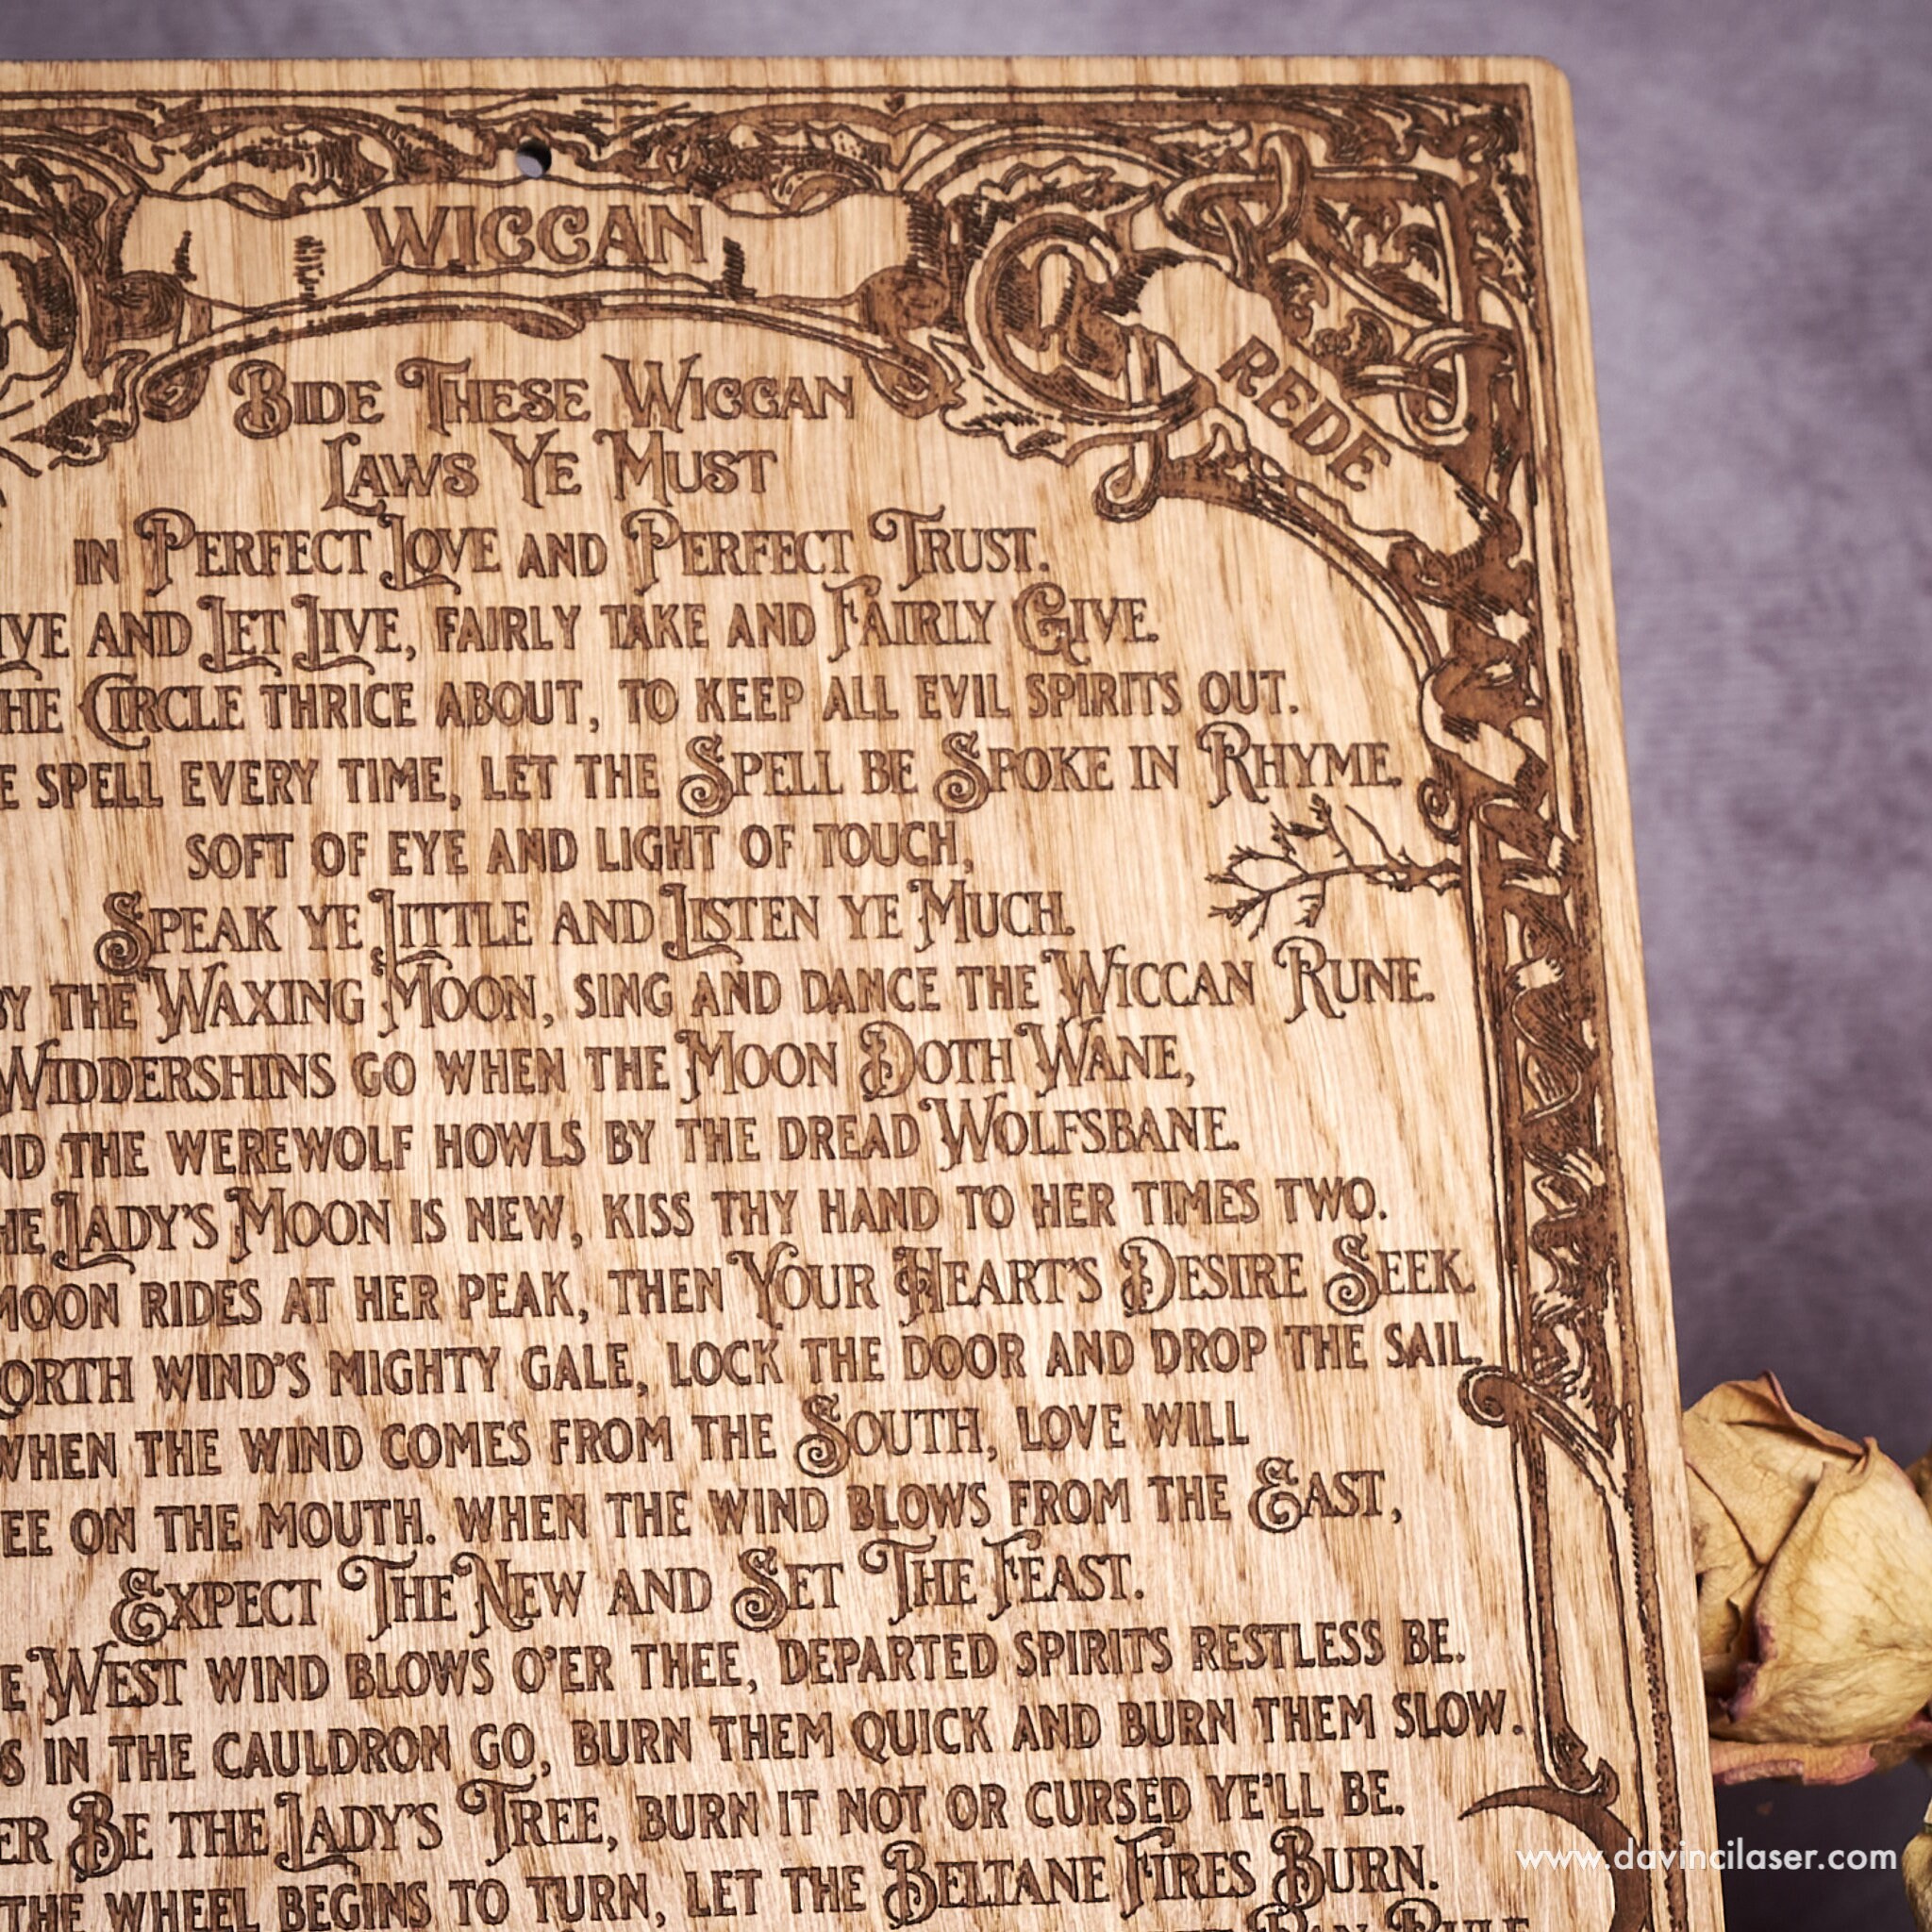 WICCAN
REDE
BIDE THESE WICCAN
LAWS YE MUST
IN PERFECT LOVE AND PERFECT TRUST.
IVE AND LET LIVE, FAIRLY TAKE AND FAIRLY GIVE.
HE CIRCLE THRICE ABOUT, TO KEEP ALL EVIL SPIRITS OUT.
E SPELL EVERY TIME, LET THE SPELL BE SPOKE IN RHYME.
SOFT OF EYE AND LIGHT OF TOUCH,
SPEAK YE LITTLE AND LISTEN YE MUCH.
BY THE WAXING MOON, SING AND DANCE THE WICCAN RUNE.
WIDDERSHINS GO WHEN THE MOON DOTH WANE,
ND THE WEREWOLF HOWLS BY THE DREAD WOLFSBANE.
HE LADY'S MOON IS NEW, KISS THY HAND TO HER TIMES TWO.
MOON RIDES AT HER PEAK, THEN YOUR HEART'S DESIRE SEEK.
ORTH WIND'S MIGHTY GALE, LOCK THE DOOR AND DROP THE SAIL.
WHEN THE WIND COMES FROM THE SOUTH, LOVE WILL
EE ON THE MOUTH. WHEN THE WIND BLOWS FROM THE EAST,
EXPECT THE NEW AND SET THE FEAST.
E WEST WIND BLOWS O'ER THEE, DEPARTED SPIRITS RESTLESS BE.
S IN THE CAULDRON GO, BURN THEM QUICK AND BURN THEM SLOW.
ER BE THE LADY'S TREE, BURN IT NOT OR CURSED YE'LL BE.
THE WHEEL BEGINS TO TURN, LET THE BELTANE FIRES BURN.
www.davincilaser.com